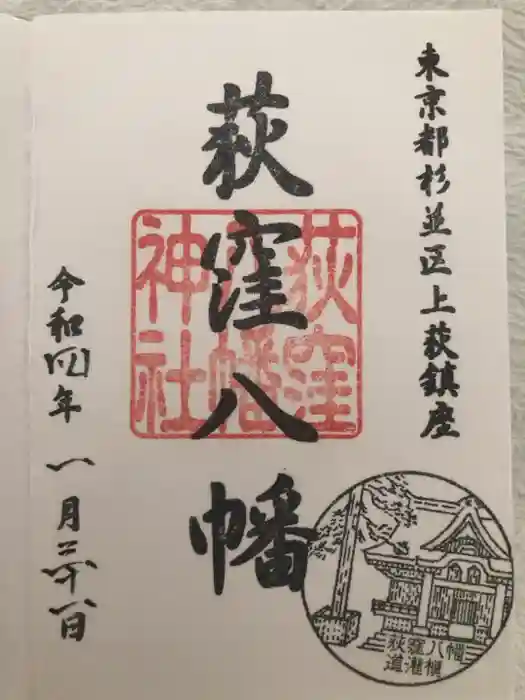 東京都杉並区上荻鎮座
荻窪八幡
荻窪
八幡
神社
令和四年 一月 日
荻窪八幡
道灌槇